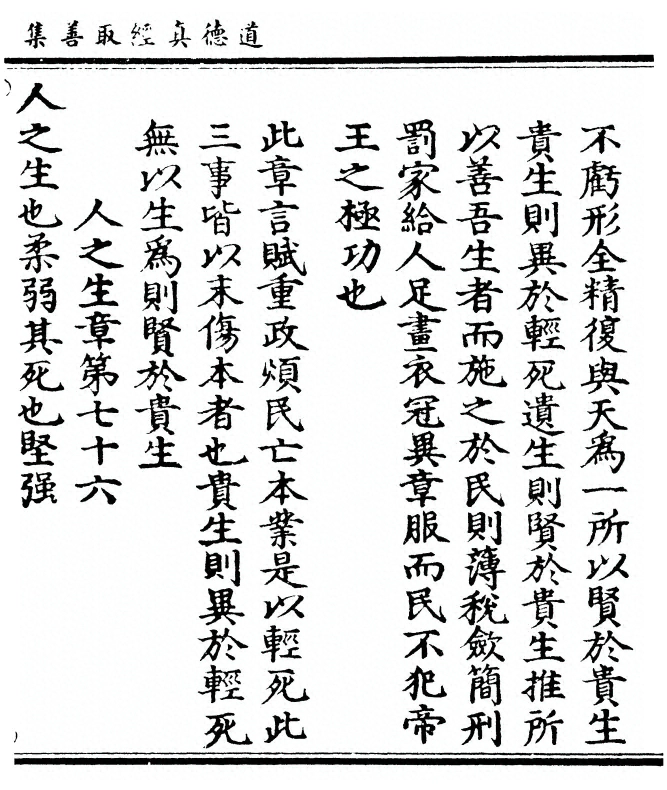 道德真經取善集
不虧形全精復與天為一所以賢於貴生
貴生則異於輕死遺生則賢於貴生推所
以善吾生者而施之於民則薄稅斂簡刑
罰家給人足畫衣冠異章服而民不犯帝
王之極功也
此章言賦重政煩民亡本業是以輕死此
三事皆以末傷本者也貴生則異於輕死
無以生爲則賢於貴生
人之生章第七十六
人之生也柔弱其死也堅强